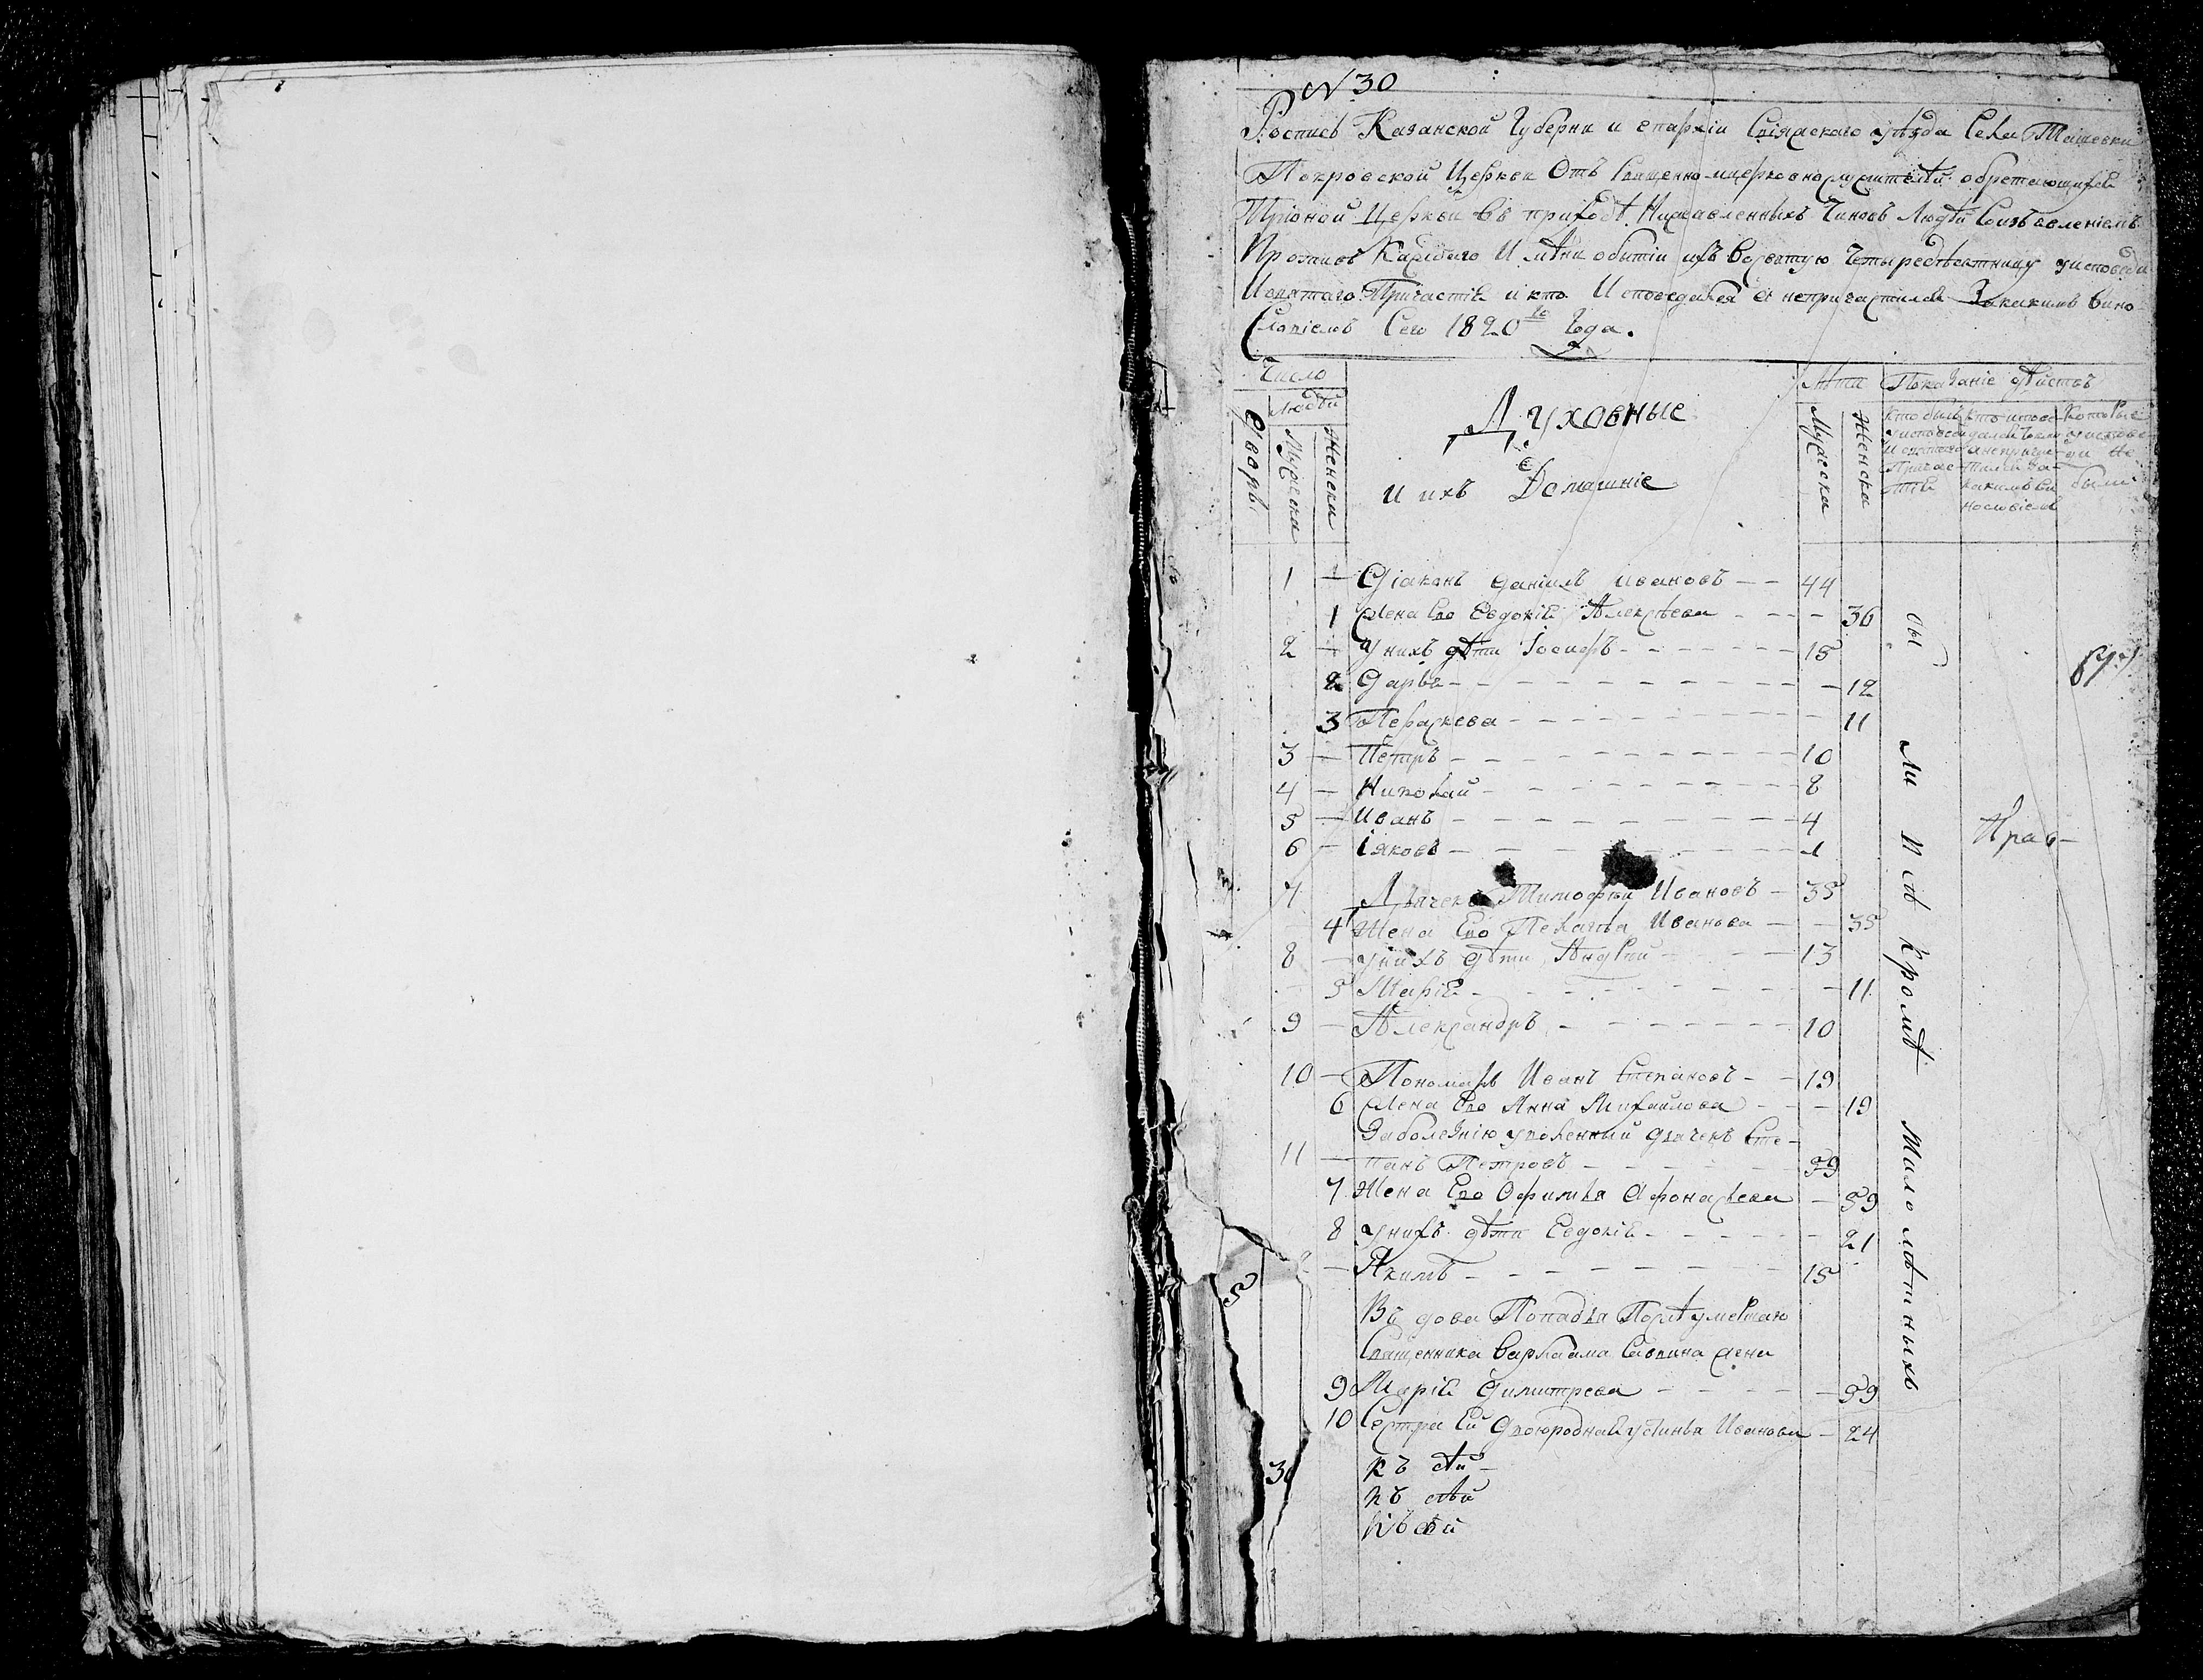 № 30
Роспись Казанской Губерни и епархіи Свіяжскаго уѣзда Села Ташевки
Покровской Церкви Отъ Священно-ицерковнослужителѣй обретающихся
Прионой Церкви въ приходѣ Нижеявленныхъ Чиновъ Людѣй Соизъявленіемъ
Противъ Каждаго Имѣни обытіи ихъ Восвятую Четыредѣсятницу уисповѣди
Исвятаго Причастія икто Исповедался а непричастился Закакимъ вино
Словіемъ Сего 1820го Года.
Число
Людѣй
Дворы
Мужеска
Женска
Духовные
и ихъ Домашніе
Лѣта
Мужеска
Женска
Показаніе дѣйствъ
кто былъ уисповеди исвятаго Причастія
кто исповедался анепричастился закакимъ винословіемъ
Которые уисповеди не были
1 — Діаконъ Даніилъ Ивановъ — — 44
1 Жена Его Евдокія Алексѣева — — 36
2 — У нихъ дѣти Іосифъ — — 15
2 Дарья — — 12
3 Параскева — — 11
3 — Петръ — — 10
4 — Николай — — 8
5 — Иванъ — — 4
6 — Іяковъ — — 1
7 Дьячекъ Тимофѣй Ивановъ — 35
4 Жена Его Пелагѣя Иванова — — 35
8 — унихъ дѣти Андрѣй — — 13
5 Марія — — 11
9 — Александръ — — 10
10 — Пономарь Иванъ Степановъ — — 19
6 Жена Его Анна Михайлова — — 19
Заболезнію уволенный дьячекъ Сте-
11 — панъ Петровъ — — 59
7 Жена Его Офимья Афонасьева — 59
8 Унихъ дѣти Евдокія — — 21
— Якимъ — — 15
Въдова Попадья Послѣ умершаго
Священника Варлаама Саввина жена
9 Марія Димитрева — — 59
10 Сестра Ей Двоюродная Устинья Иванова — 24
къ сѣй
къ сѣй
къ сѣй
бы ли всѣ Кромѣ Малолѣтныхъ
Прав-
5
3